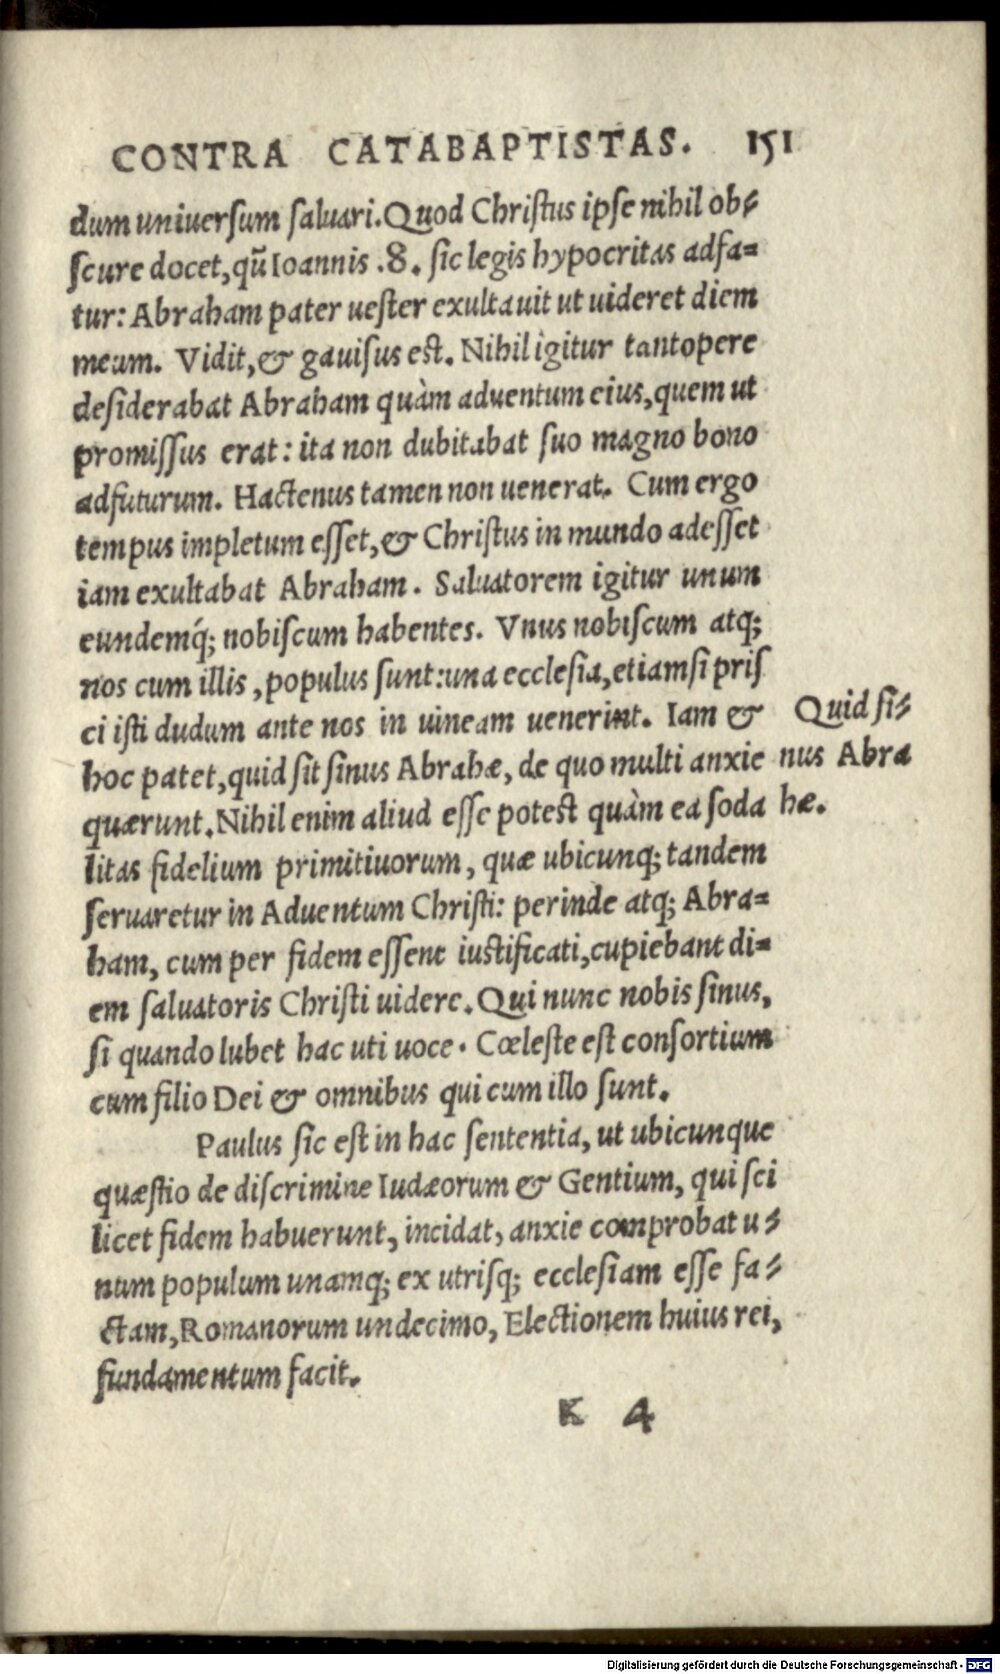 CONTRA CATABAPTISTAS. 151
dum uniuersum saluari. Quod Christus ipse nihil ob⸗
scure docet, qũ Ioannis .8. sic legis hypocritas adfa⸗
tur: Abraham pater uester exultauit ut uideret diem
meum. Vidit, & gauisus est. Nihil igitur tantopere
desiderabat Abraham quàm aduentum eius, quem ut
promissus erat: ita non dubitabat suo magno bono
adfuturum. Hactenus tamen non uenerat. Cum ergo
tempus impletum esset, & Christus in mundo adesset
iam exultabat Abraham. Saluatorem igitur unum
eundemq́; nobiscum habentes. Vnus nobiscum atq;
nos cum illis, populus sunt: una ecclesia, etiamsi pris
ci isti dudum ante nos in uineam uenerint. Iam &
hoc patet, quid sit sinus Abrahæ, de quo multi anxie
quærunt. Nihil enim aliud esse potest quàm ea soda
litas fidelium primitiuorum, quæ ubicunq; tandem
seruaretur in Aduentum Christi: perinde atq; Abra⸗
ham, cum per fidem essent iustificati, cupiebant di⸗
em saluatoris Christi uidere. Qui nunc nobis sinus,
si quando lubet hac uti uoce. Cœleste est consortium
cum filio Dei & omnibus qui cum illo sunt.
Paulus sic est in hac sententia, ut ubicunque
quæstio de discrimine Iudæorum & Gentium, qui sci
licet fidem habuerunt, incidat, anxie comprobat u⸗
num populum unamq; ex utrisq; ecclesiam esse fa⸗
ctam, Romanorum undecimo, Electionem huius rei,
fundamentum facit.
K 4
Quid si⸗
nus Abra
hæ.
Digitalisierung gefördert durch die Deutsche Forschungsgemeinschaft - DFG